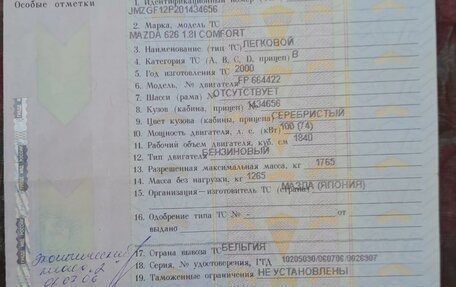 Особые отметки
1. Идентификационный номер
JMZGF12P201434656
2. Марка, модель ТС
MAZDA 626 1.8I COMFORT
3. Наименование (тип ТС) ЛЕГКОВОЙ
4. Категория ТС (А, В, С, D, прицеп) В
5. Год изготовления ТС 2000
6. Модель, № двигателя FP 664422
7. Шасси (рама) № ОТСУТСТВУЕТ
8. Кузов (кабина, прицеп) № 1434656
9. Цвет кузова (кабины, прицепа) СЕРЕБРИСТЫЙ
10. Мощность двигателя, л. с. (кВт) 100 (74)
11. Рабочий объем двигателя, куб. см 1840
12. Тип двигателя БЕНЗИНОВЫЙ
13. Разрешенная максимальная масса, кг 1765
14. Масса без нагрузки, кг 1265
15. Организация—изготовитель ТС (страна) МАЗДА (ЯПОНИЯ)
16. Одобрение типа ТС № - от
выдано
17. Страна вывоза ТС БЕЛЬГИЯ
18. Серия, № удостоверения, ГТД 10205090/060706/0026907
19. Таможенные ограничения НЕ УСТАНОВЛЕНЫ
Экологический
класс 2